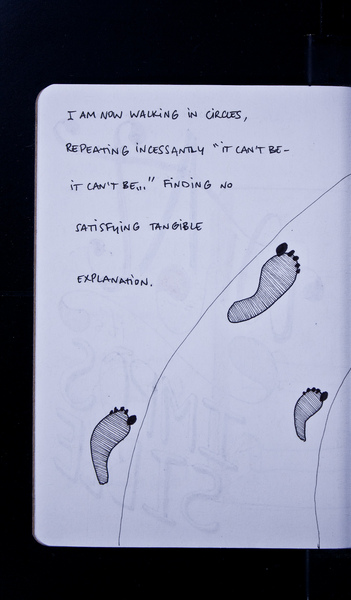 I AM NOW WALKING IN CIRCLES,
REPEATING INCESSANTLY "IT CAN'T BE-
IT CAN'T BE..." FINDING NO
SATISFYING TANGIBLE
EXPLANATION.